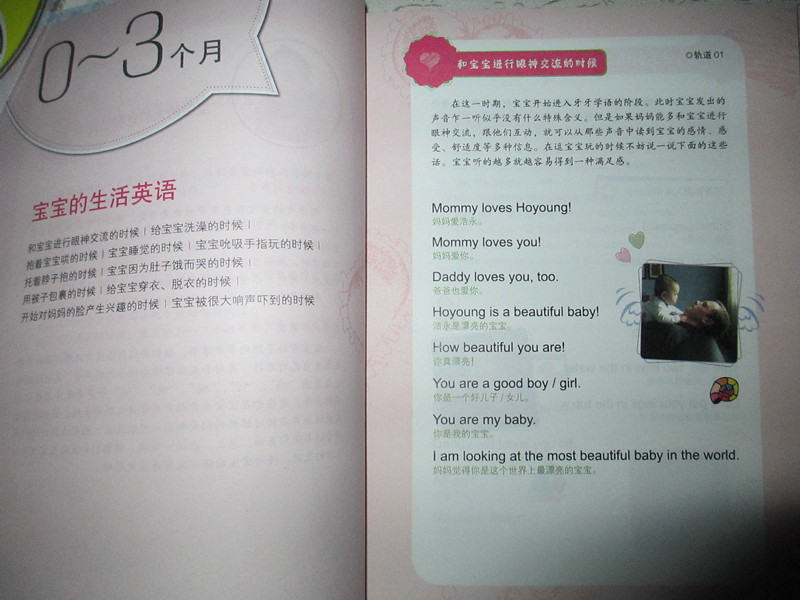 0~3个月
宝宝的生活英语
和宝宝进行眼神交流的时候 | 给宝宝洗澡的时候 |
抱着宝宝哄的时候 | 宝宝睡觉的时候 | 宝宝吮吸手指玩的时候 |
托着脖子抱的时候 | 宝宝因为肚子饿而哭的时候 |
用被子包裹的时候 | 给宝宝穿衣、脱衣的时候 |
开始对妈妈的脸产生兴趣的时候 | 宝宝被很大响声吓到的时候
和宝宝进行眼神交流的时候
◎轨道 01
在这一时期，宝宝开始进入牙牙学语的阶段。此时宝宝发出的
声音乍一听似乎没有什么特殊含义。但是如果妈妈能多和宝宝进行
眼神交流，跟他们互动，就可以从那些声音中读到宝宝的感情、感
受、舒适度等多种信息。在逗宝宝玩的时候不妨说一说下面的这些
话。宝宝听的越多就越容易得到一种满足感。
Mommy loves Hoyoung!
妈妈爱浩永。
Mommy loves you!
妈妈爱你。
Daddy loves you, too.
爸爸也爱你。
Hoyoung is a beautiful baby!
浩永是漂亮的宝宝。
How beautiful you are!
你真漂亮！
You are a good boy / girl.
你是一个好儿子 / 女儿。
You are my baby.
你是我的宝宝。
I am looking at the most beautiful baby in the world.
妈妈觉得你是这个世界上最漂亮的宝宝。